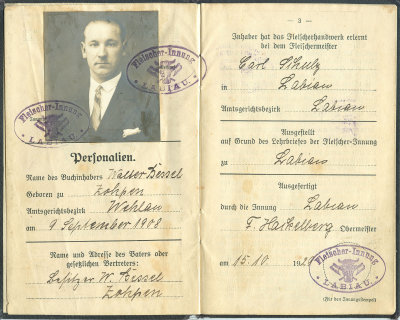 Fleischer-Innung
LABIAU.
Fleischer-Innung
LABIAU.
Personalien.
Name des Buchinhabers Walter Bessel
Geboren zu
Zohpen
Amtsgerichtsbezirk Wehlau
am 9 September 1908
Name und Adresse des Vaters oder
gesetzlichen Vertreters:
Besitzer W. Bessel
Zohpen
— 3 —
Inhaber hat das Fleischerhandwerk erlernt
bei dem Fleischermeister
Carl Schulz
in Labiau
Amtsgerichtsbezirk Labiau
Ausgestellt
auf Grund des Lehrbriefes der Fleischer-Innung
zu Labiau
Ausgefertigt
durch die Innung Labiau
F. Obermeister
am 15.10 192
Fleischer-Innung
LABIAU.
(Für den Innungsstempel)